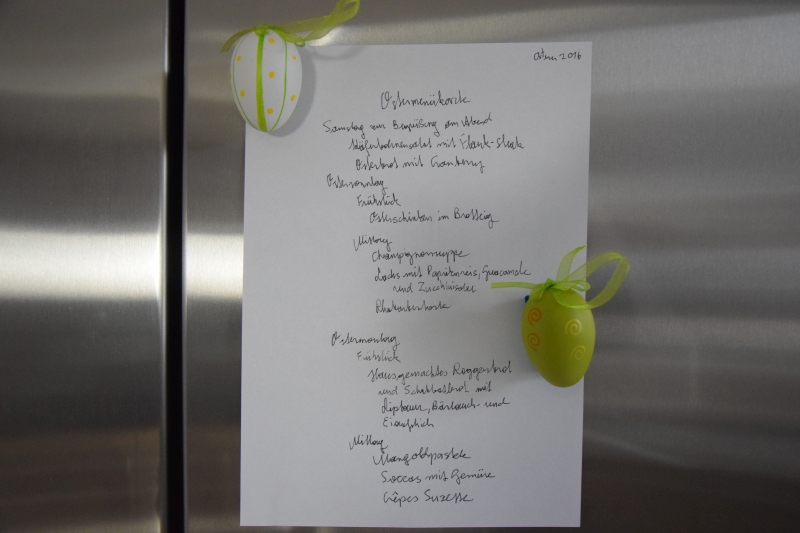 Ostern 2016
Ostermenükarte
Samstag zur Begrüßung am Abend
Käferbohnensalat mit Flank-Steak
Osterbrot mit Cranberry
Ostersonntag
Frühstück
Osterschinken im Brotteig
Mittag
Champignonsuppe
Lachs mit Guacamole
und
Rhabarbertorte
Ostermontag
Frühstück
Hausgemachtes Roggenbrot
und mit
Liptauer, Bärlauch- und
Eiaufstrich
Mittag
Mangoldpastete
Soccas mit Gemüse
Crêpes Suzette